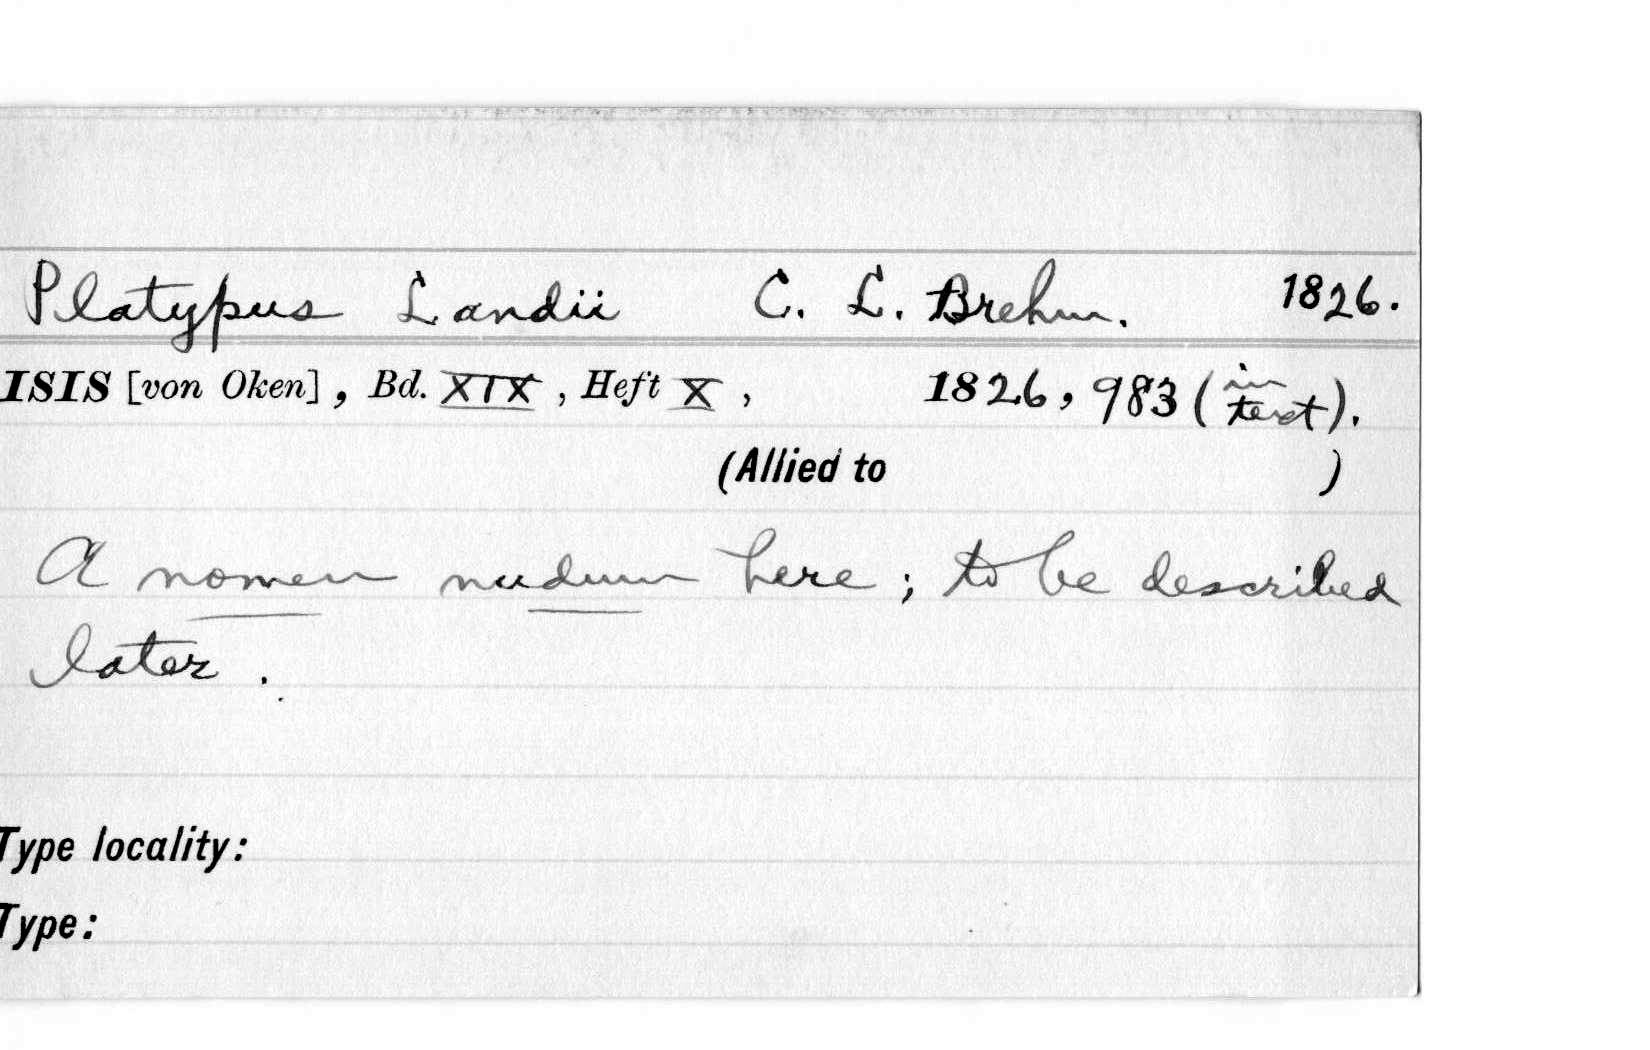 Platypus Landii C. L. Brehm. 1826.
ISIS [von Oken], Bd. XIX, Heft X, 1826, 983 (in text).
(Allied to )
A nomen nudum here; to be described
later.
Type locality:
Type: